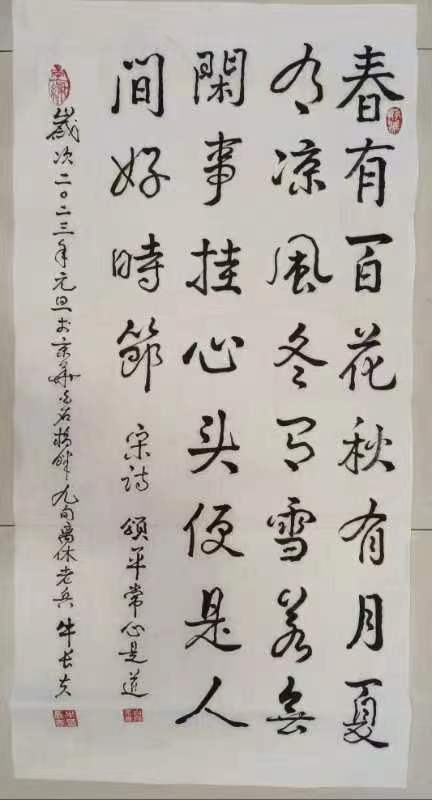 春有百花秋有月夏
有凉風冬有雪若無
閑事挂心头便是人
間好時節
宋詩 頌平常心是道
歲次二〇二三年元旦於京華石橋畔九旬离休老兵牛长